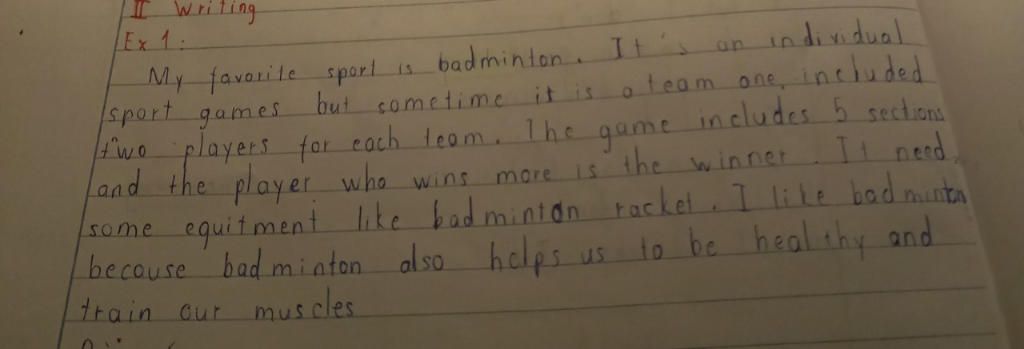 II Writing
Ex 1:
My favorite sport is badminton. It's an individual
sport games but sometime it is a team one, included
two players for each team. The game includes 5 sections
and the player who wins more is the winner. It need
some equitment like badminton racket. I like badminton
because badminton also helps us to be healthy and
train our muscles